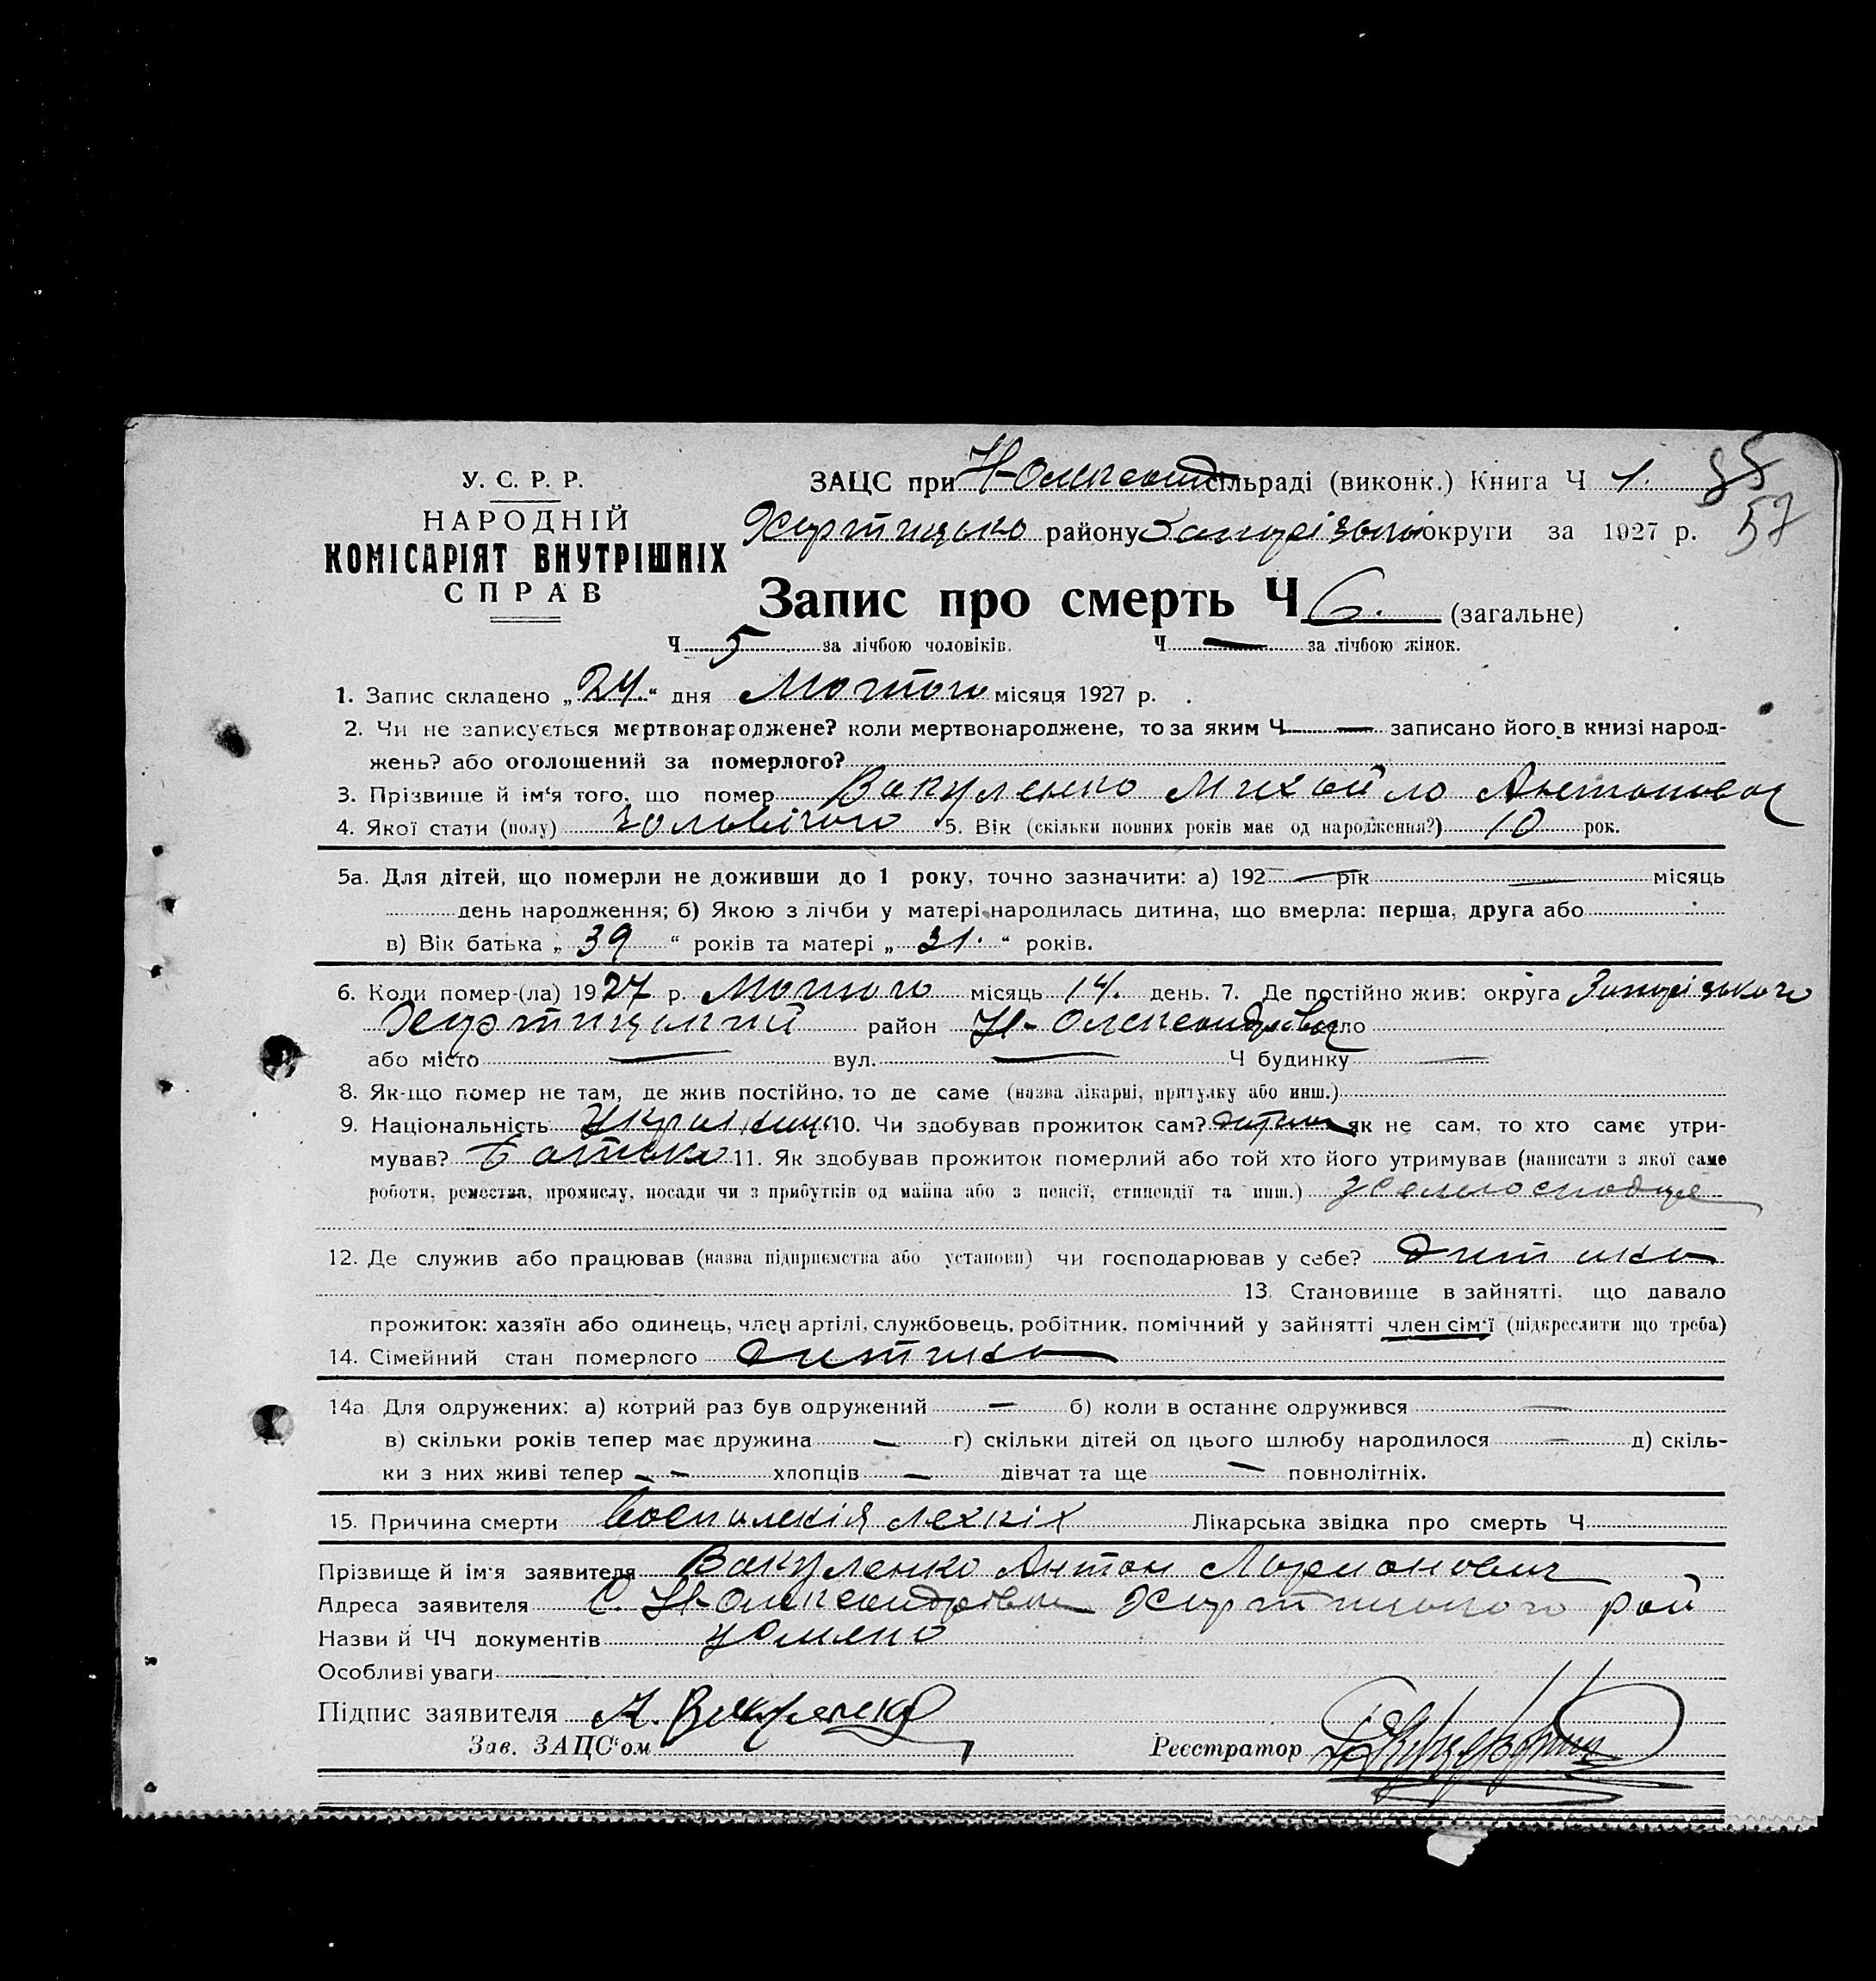 55
57
У. С. Р. Р.
НАРОДНІЙ
КОМІСАРІЯТ ВНУТРІШНІХ
СПРАВ
ЗАЦС при Н-Олександ сільраді (виконк.) Книга Ч 1.
Хортицько району округи за 1927 р.
Запис про смерть Ч 6. (загальне)
Ч 5 за лічбою чоловіків. Ч — за лічбою жінок.
1. Запис складено „24." дня Лютого місяця 1927 р.
2. Чи не записується мертвонароджене? коли мертвонароджене, то за яким Ч — записано його в книзі народ-
жень? або оголошений за померлого?
3. Прізвище й ім'я того, що помер Вакуленко Михайло Антонович
4. Якої стати (полу) чоловічого 5. Вік (скільки повних років має од народження?) 10 рок.
5а. Для дітей, що померли не доживши до 1 року, точно зазначити: а) 192 — рік — місяць
день народження; б) Якою з лічби у матері народилась дитина, що вмерла: перша, друга або
в) Вік батька „ 39 " років та матері „ 31. " років.
6. Коли помер-(ла) 1927 р. Лютого місяць 14. день. 7. Де постійно жив: округа Запорізького
Хортицький район Н-Олександрівка село
або місто — вул. — Ч будинку —
8. Як-що помер не там, де жив постійно, то де саме (назва лікарні, притулку або инш.)
9. Національність Україниць 10. Чи здобував прожиток сам? як не сам, то хто саме утри-
мував? Батько 11. Як здобував прожиток померлий або той хто його утримував (написати з якої саме
роботи, ремества, промислу, посади чи з прибутків од майна або з пенсії, стипендії та инш.)
12. Де служив або працював (назва підприємства або установи) чи господарював у себе? Дитина
13. Становище в зайнятті, що давало
прожиток: хазяїн або одинець, член артілі, службовець, робітник, помічний у зайнятті член сім'ї (підкреслити що треба)
14. Сімейний стан померлого Дитина
14а Для одружених: а) котрий раз був одружений — б) коли в останнє одружився —
в) скільки років тепер має дружина — г) скільки дітей од цього шлюбу народилося — д) скіль-
ки з них живі тепер — — хлопців — дівчат та ще — повнолітніх.
15. Причина смерти Воспаленія лехкіх Лікарська звідка про смерть Ч
Прізвище й ім'я заявителя Вакуленко Антон
Адреса заявителя С. Н-Олександрівка Хортицького рай
Назви й ЧЧ документів
Особливі уваги
Підпис заявителя А. Вакуленко
Зав. ЗАЦС'ом Реєстратор